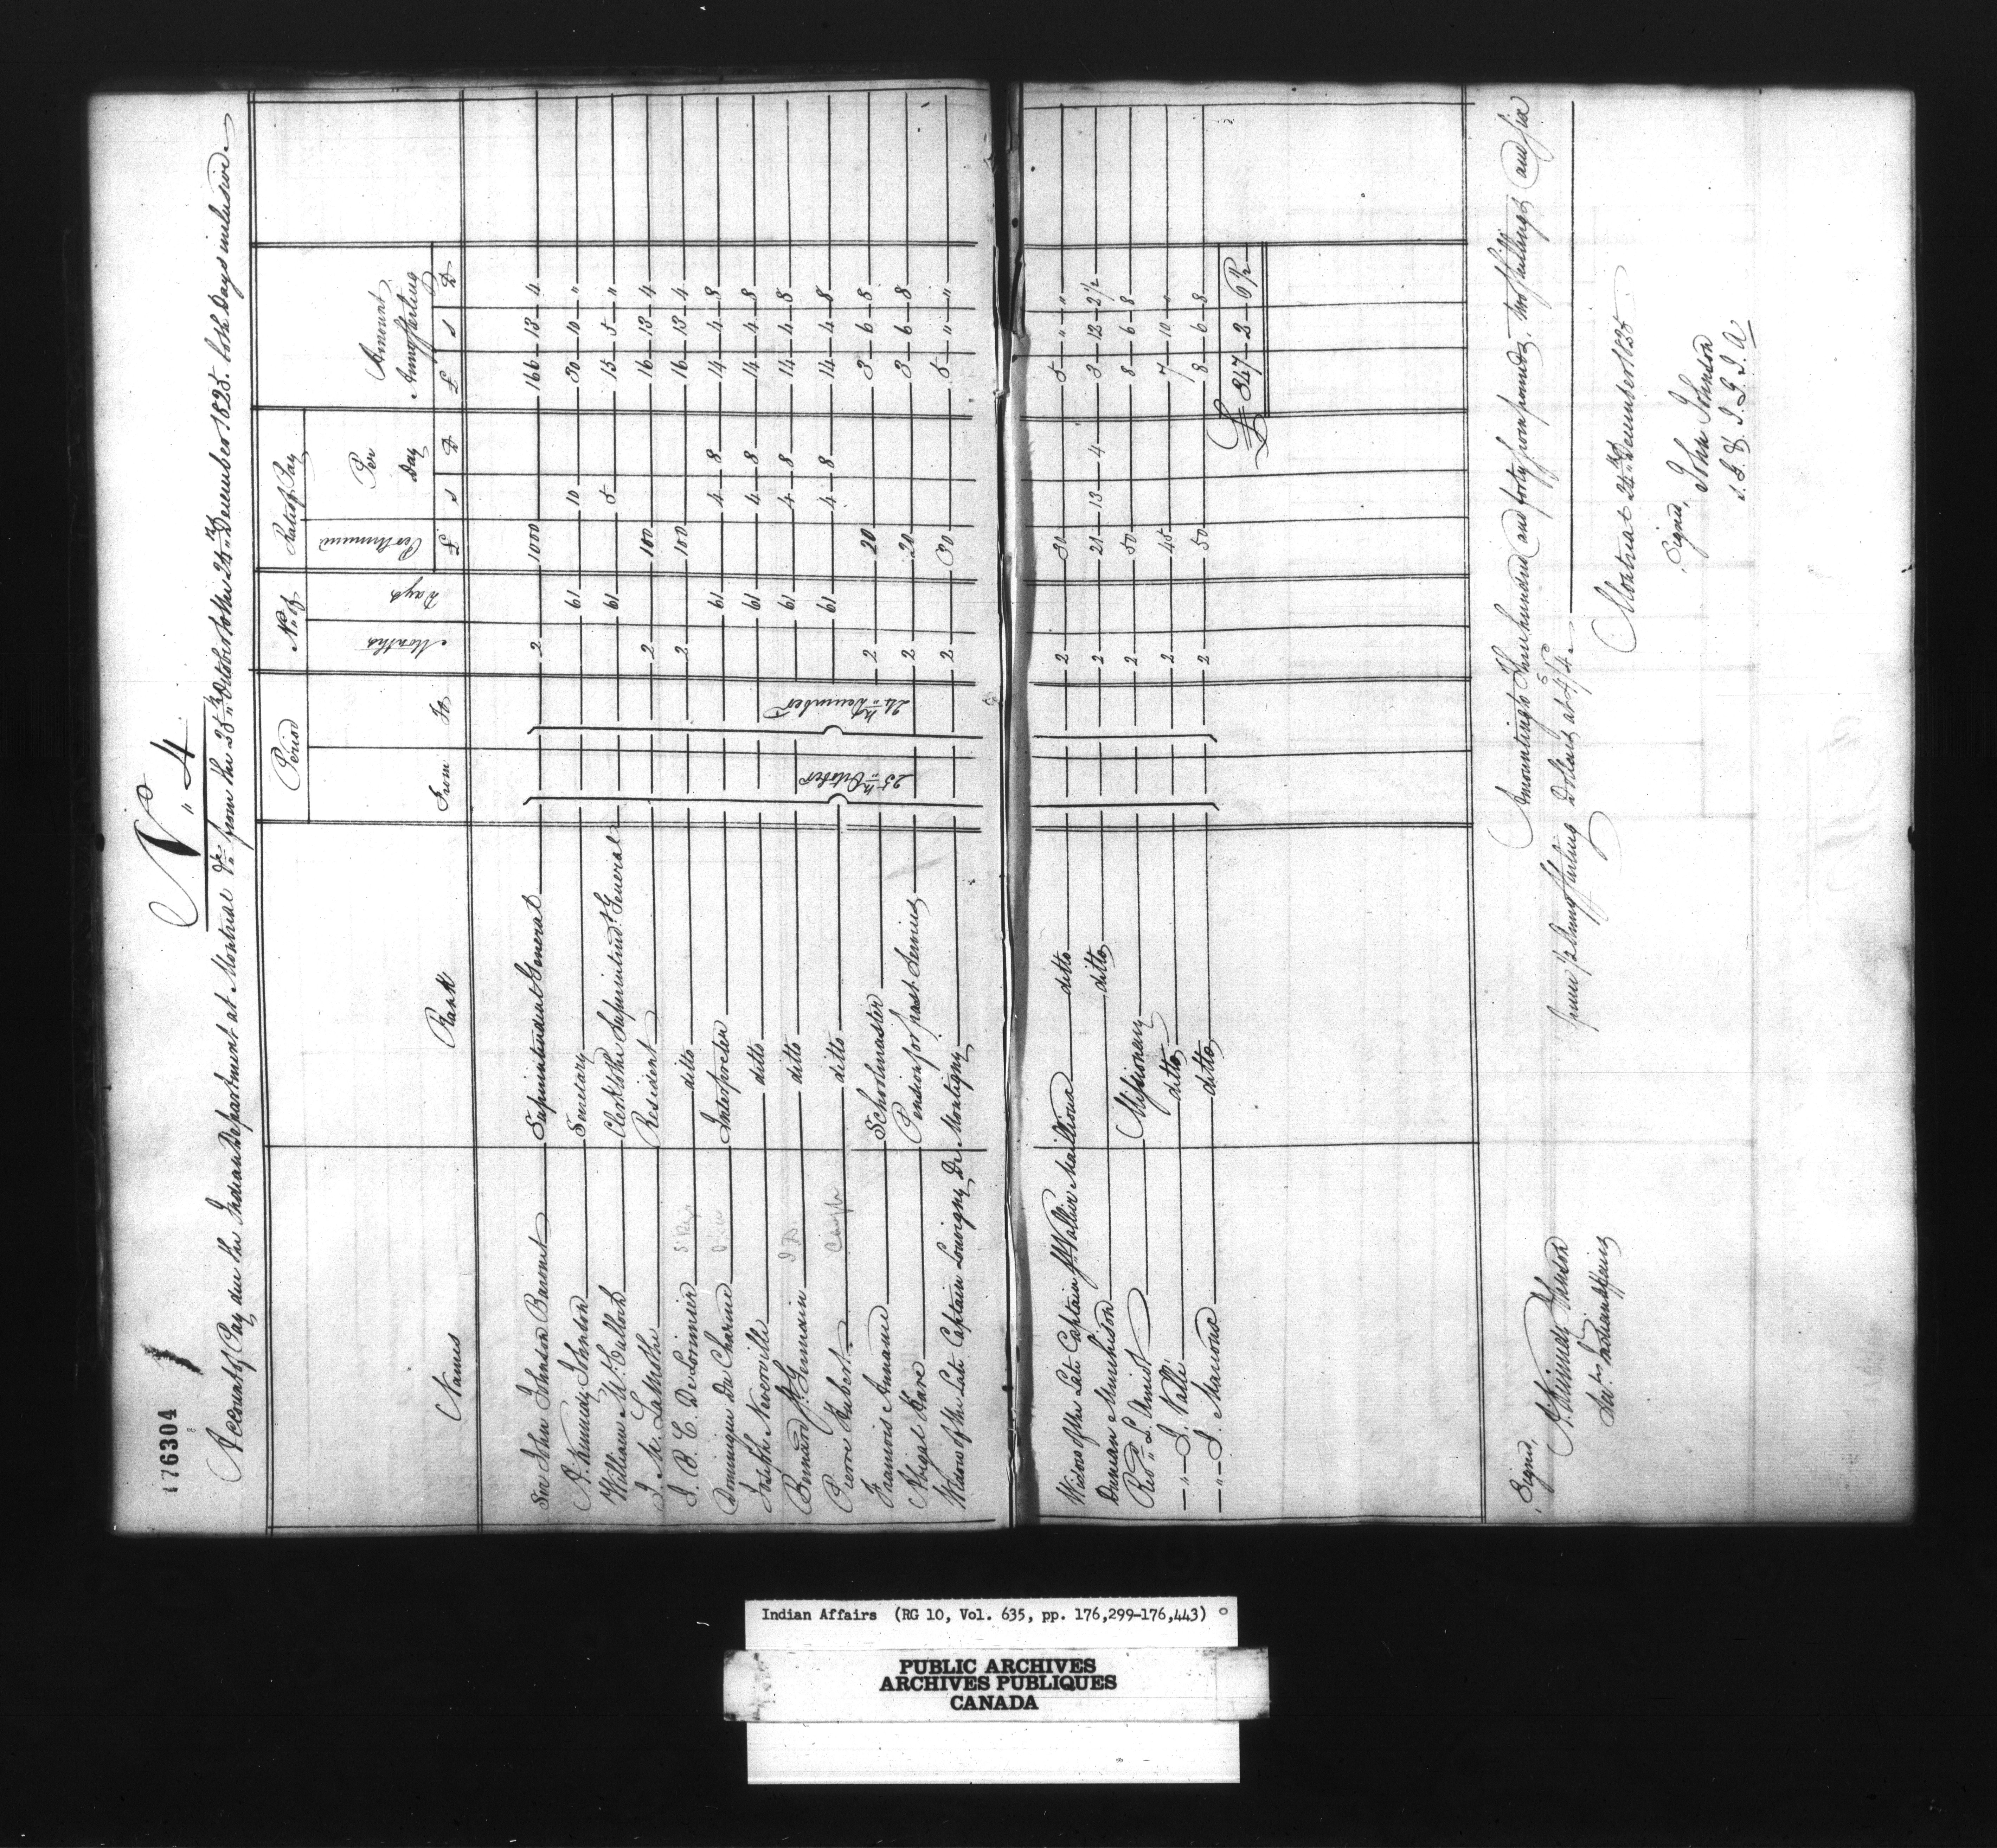 176304
N.. 4
Account of Pay due the Indian Department at Montreal &c. from the 25th October to the 24th December 1825. both days inclusive.
Names Rank Period No. of Rate of Pay Amount Army Sterling
From To Months Days Per Annum Per Day
£ S D £ S D
Sir John Johnson Baronet Superintendent General 2 1000 166 13 4
N. Kennedy Johnson Secretary 61 10 30 10 "
William McCulloch Clerk to the Superintendt. General 61 5 15 5 "
J. M. Lamothe Resident 2 100 16 13 4
J. B. C. De Lorimier ditto 2 100 16 13 4
Dominique Du Charme Interpreter 61 4 8 14 4 8
Joseph Neverville ditto 61 4 8 14 4 8
Bernard St. Germain ditto 61 4 8 14 4 8
Pierre Hubert ditto 61 4 8 14 4 8
Francois Annance Schoolmaster 2 20 3 6 8
Abigal Hare Pension for past Services 2 20 3 6 8
Widow of the Late Captain Louvigny De Montigny 2 30 5 " "
25th October
24th December
Widow of the Late Captain J. Vallier Mailloux ditto 2 30 5 " "
Duncan Murchison ditto 2 21 13 4 3 12 2½
Revd. L. Amiot Missionary 2 50 8 6 8
" J. Vallé ditto 2 45 7 10 "
" J. Marcoux ditto 2 50 8 6 8
£ 347 2 6½
Amounting to Three hundred and forty seven pounds, two shillings and six
pence ½ Army Sterling Dollars at 4s/8d.
Montreal 24th December 1825
Signed, Signed,
N. Kennedy Johnson John Johnson
Secy. Indian Affairs S. G. & I. G. I. A
Indian Affairs (RG 10, Vol. 635, pp. 176,299-176,443)
PUBLIC ARCHIVES
ARCHIVES PUBLIQUES
CANADA